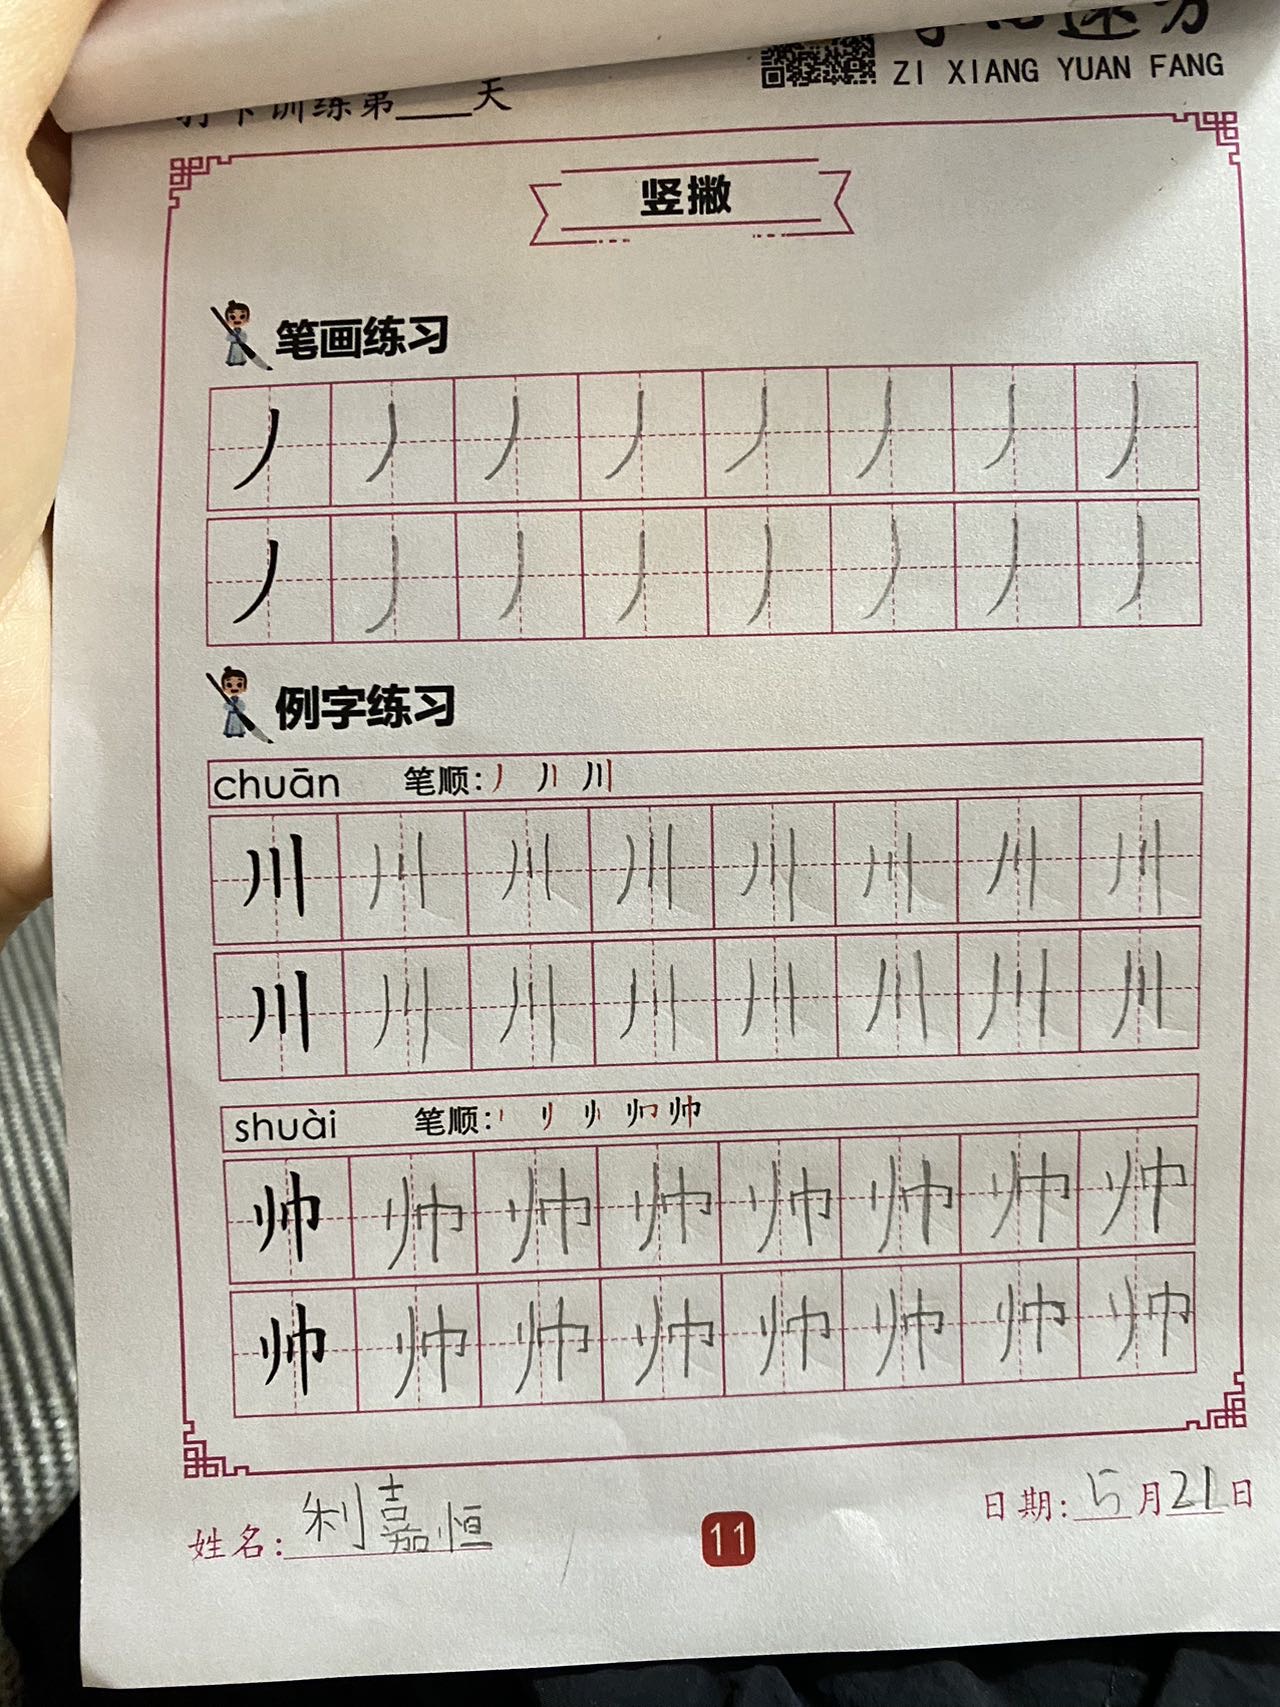 ZI XIANG YUAN FANG
打卡训练第____天
竖撇
笔画练习
丿 丿 丿 丿 丿 丿 丿 丿
丿 丿 丿 丿 丿 丿 丿 丿
例字练习
chuān 笔顺: 川
川 川 川 川 川 川 川 川
川 川 川 川 川 川 川 川
shuài 笔顺: 帅
帅 帅 帅 帅 帅 帅 帅 帅
帅 帅 帅 帅 帅 帅 帅 帅
姓名: 利嘉恒 11 日期: 5月21日